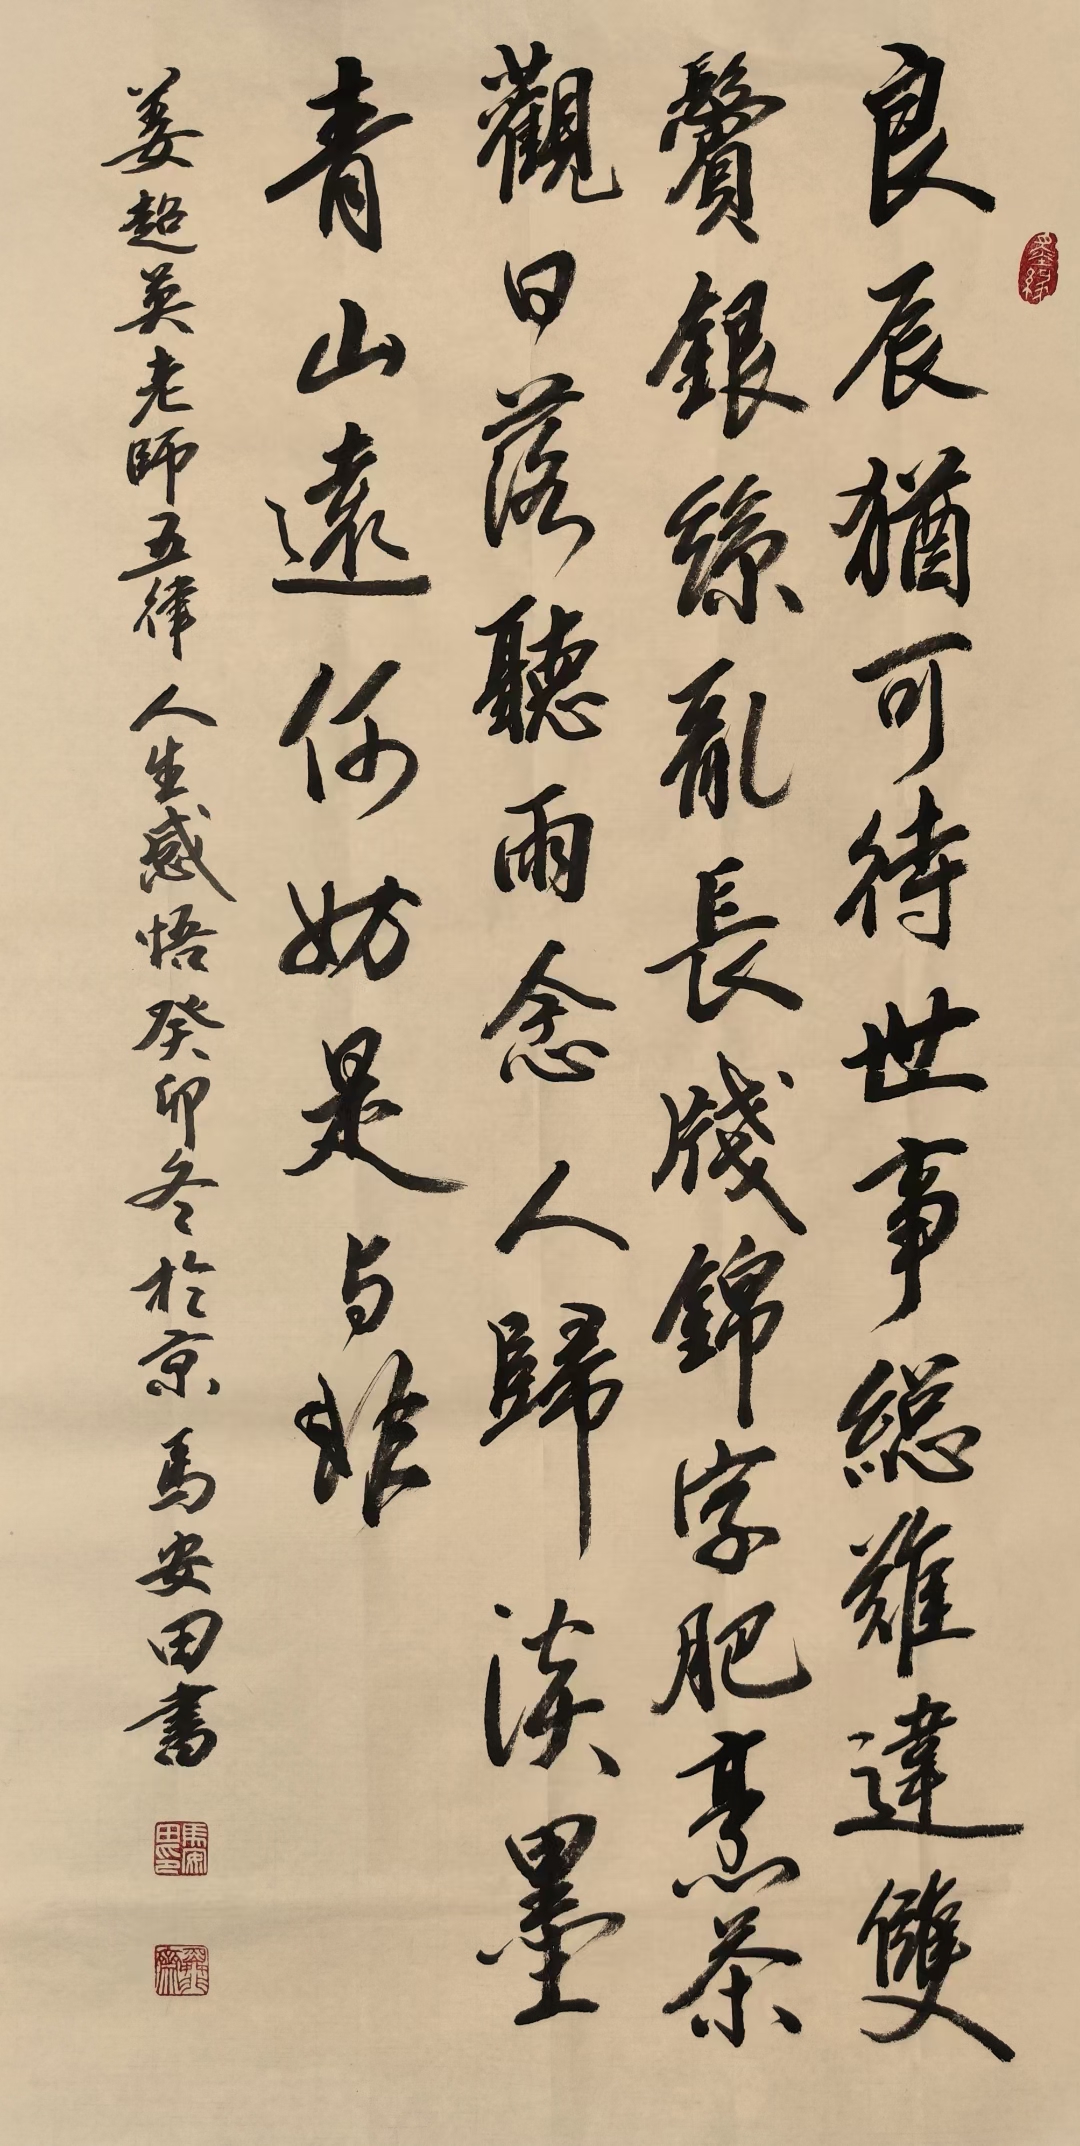 良辰猶可待世事總難違雙
鬢銀絲亂長牋錦字肥烹茶
觀日落聽雨念人歸淡墨
青山遠何妨是与非
姜超英老師五律人生感悟癸卯冬於京馬安田書
墨緣
馬安田印